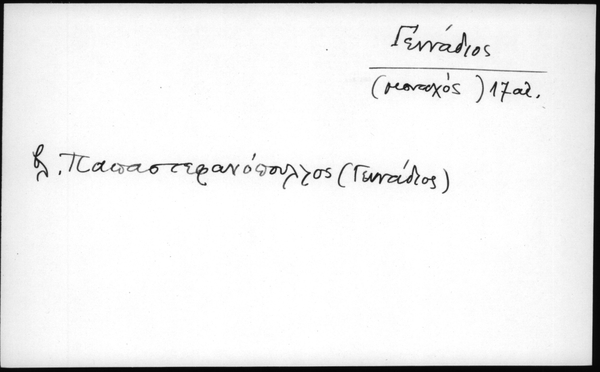 Γεννάδιος
(μοναχός) 17 αἰ.
βλ. Παπαστεφανόπουλος (Γεννάδιος)